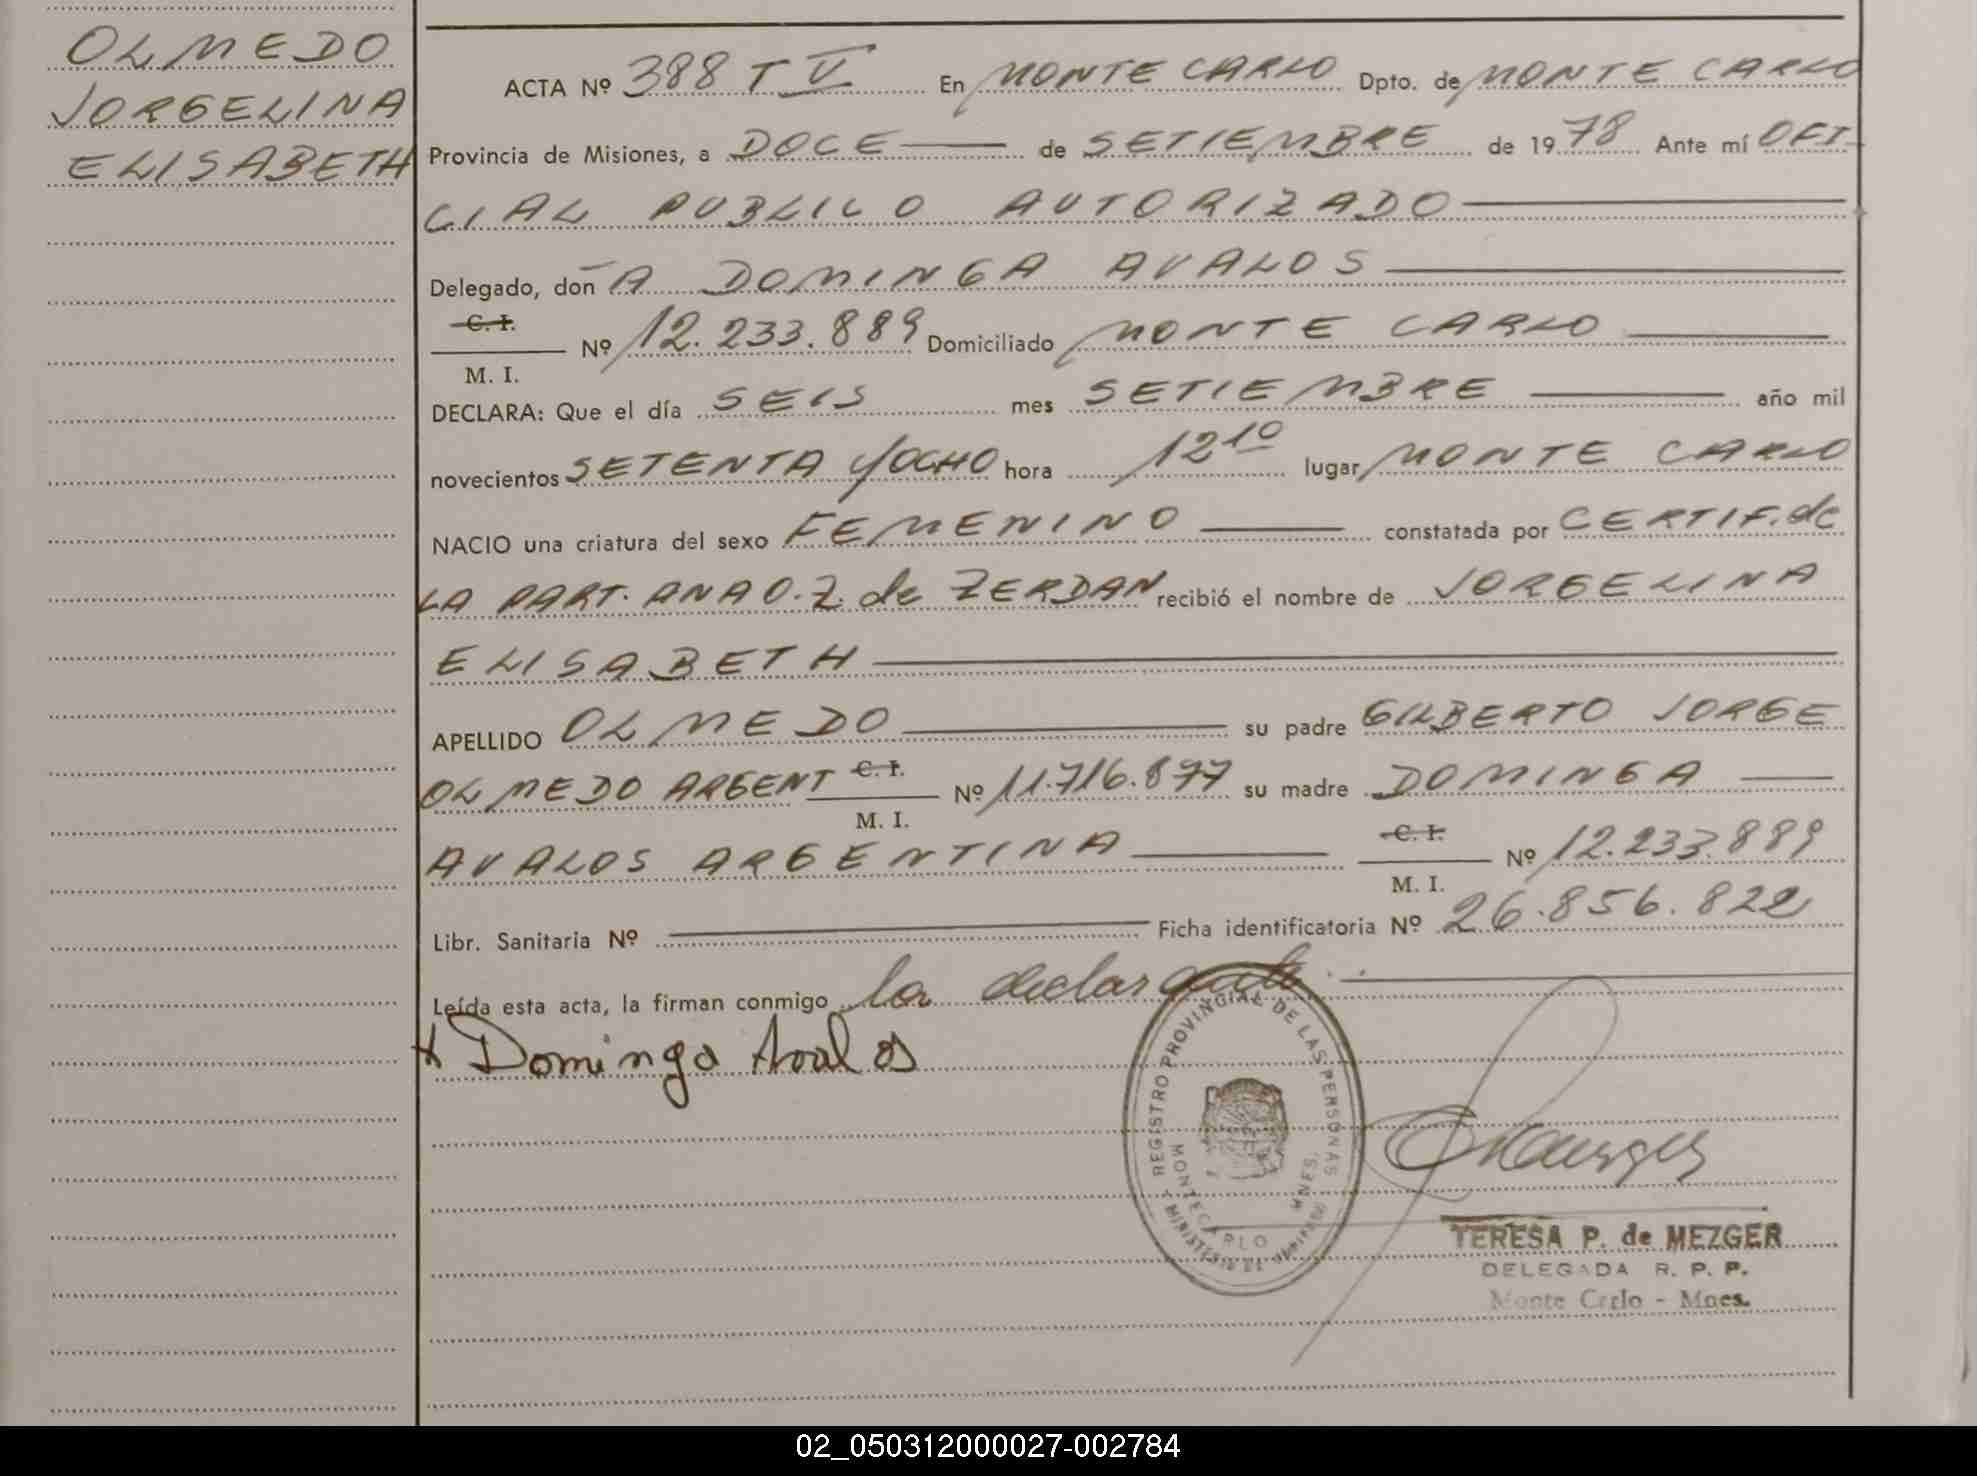 OLMEDO
JORGELINA
ELISABETH
ACTA Nº 388 T V En MONTE CARLO Dpto. de MONTE CARLO
Provincia de Misiones, a DOCE de SETIEMBRE de 1978 Ante mí OFI-
CIAL PUBLICO AUTORIZADO
Delegado, doñA DOMINGA AVALOS
C. I.
Nº 12.233.889 Domiciliado MONTE CARLO
M. I.
DECLARA: Que el día SEIS mes SETIEMBRE año mil
novecientos SETENTA Y OCHO hora 12 10 lugar MONTE CARLO
NACIO una criatura del sexo FEMENINO constatada por CERTIF. de
LA PART. ANA O. Z. de ZERDAN recibió el nombre de JORGELINA
ELISABETH
APELLIDO OLMEDO su padre GILBERTO JORGE
OLMEDO ARGENT C. I. Nº 11.716.877 su madre DOMINGA
M. I.
AVALOS ARGENTINA C. I. Nº 12.233.889
M. I.
Libr. Sanitaria Nº Ficha identificatoria Nº 26.856.822
Leída esta acta, la firman conmigo la declarante.
x Dominga Avalos
REGISTRO PROVINCIAL DE LAS PERSONAS
MONTECARLO MNES.
TERESA P. de MEZGER
DELEGADA R. P. P.
Monte Carlo - Mnes.
02_050312000027-002784